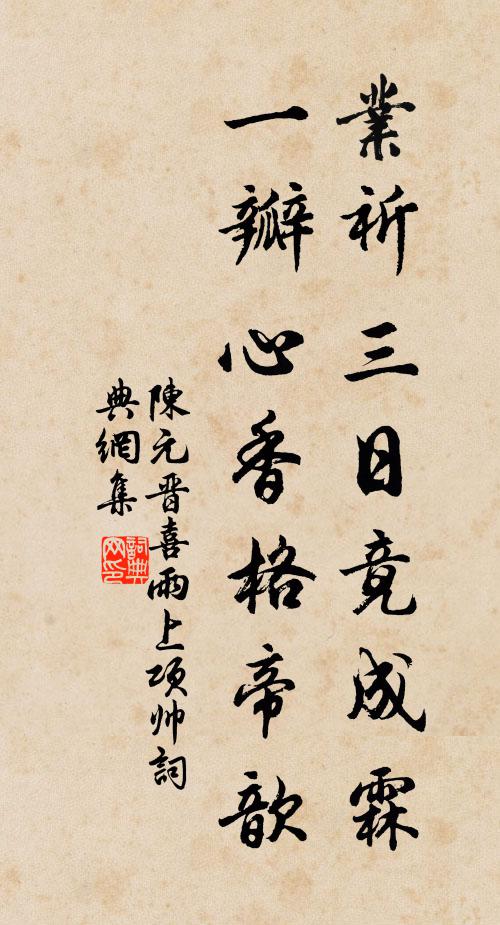 業祈三日竟成霖
一瓣心香格帝歆
陳元晋喜雨上项帅詞
典網集
詞典网印